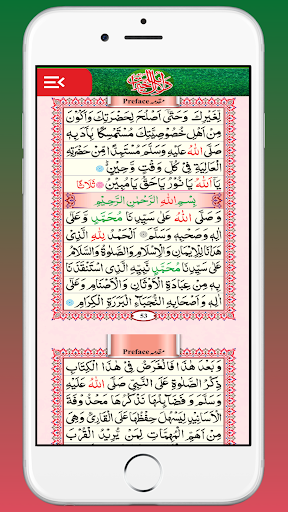 Preface مقدمہ
لِغَيْرِكَ وَحَتّٰى اَصْلُحَ لِحَضْرَتِكَ وَاَكُوْنَ
مِنْ اَهْلِ خُصُوْصِيَّتِكَ مُسْتَمْسِكًا بِاَدَبِهٖ
صَلَّى اللّٰهُ عَلَيْهِ وَسَلَّمَ مُسْتَمِدًّا مِنْ حَضْرَتِهِ
الْعَالِيَةِ فِيْ كُلِّ وَقْتٍ وَّحِيْنٍ
يَا اَللّٰهُ يَا نُوْرُ يَا حَقُّ يَا مُبِيْنُ ثَلَاثًا
بِسْمِ اللّٰهِ الرَّحْمٰنِ الرَّحِيْمِ
وَ صَلَّى اللّٰهُ عَلٰى سَيِّدِنَا مُحَمَّدٍ وَّ عَلٰى
اٰلِهٖ وَصَحْبِهٖ وَسَلَّمَ اَلْحَمْدُ لِلّٰهِ الَّذِيْ
هَدَانَا لِلْاِيْمَانِ وَالْاِسْلَامِ وَالصَّلٰوةُ وَالسَّلَامُ
عَلٰى سَيِّدِنَا مُحَمَّدٍ نَبِيِّهِ الَّذِيْ اسْتَنْقَذَنَا
بِهٖ مِنْ عِبَادَةِ الْاَوْثَانِ وَالْاَصْنَامِ وَعَلٰى
اٰلِهٖ وَ اَصْحَابِهِ النُّجَبَآءِ الْبَرَرَةِ الْكِرَامِ
53
Preface مقدمہ
وَ بَعْدَ هٰذَا فَالْغَرَضُ فِيْ هٰذَا الْكِتَابِ
ذِكْرُ الصَّلٰوةِ عَلَى النَّبِيِّ صَلَّى اللّٰهُ عَلَيْهِ
وَسَلَّمَ وَ فَضَآئِلِهَا نَذْكُرُهَا مَحْذُوْفَةَ
الْاَسَانِيْدِ لِيَسْهُلَ حِفْظُهَا عَلَى الْقَارِئِ وَهِيَ
مِنْ اَهَمِّ الْمُهِمَّاتِ لِمَنْ يُّرِيْدُ الْقُرْبَ